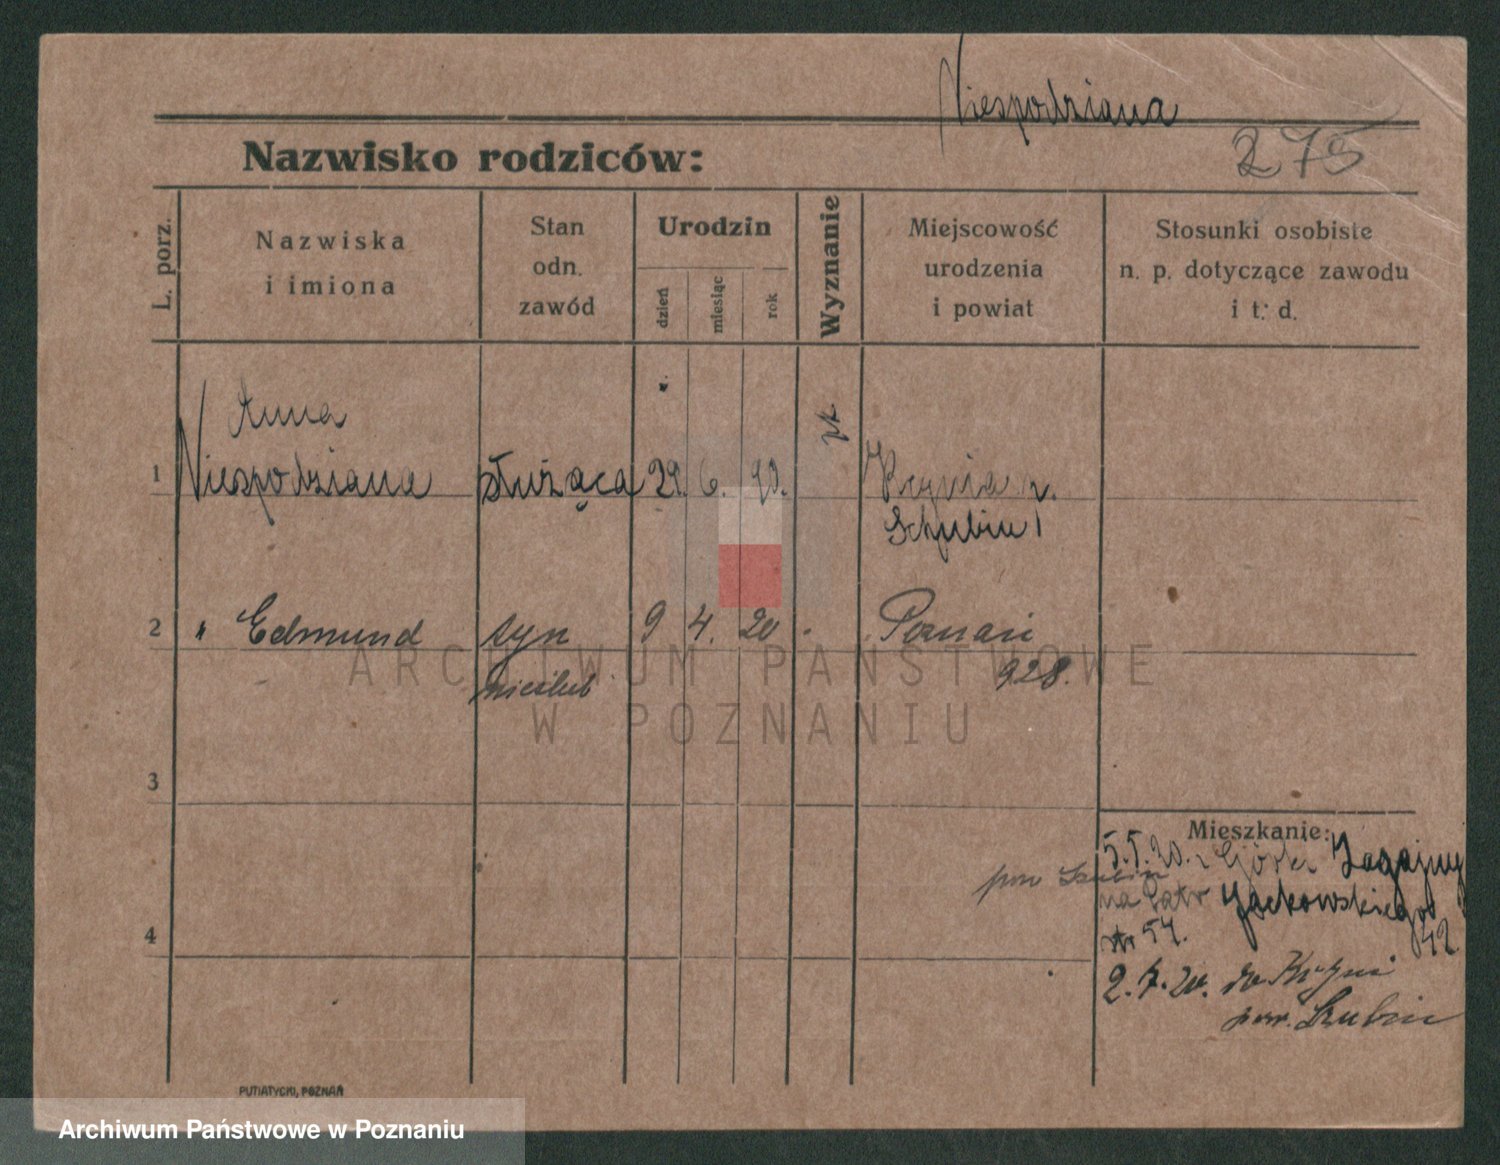 Niespodziana
275
Nazwisko rodziców:
L. porz.
Nazwiska
i imiona
Stan
odn.
zawód
Urodzin
dzień
miesiąc
rok
Wyznanie
Miejscowość
urodzenia
i powiat
Stosunki osobiste
n. p. dotyczące zawodu
i t. d.
Anna
1 Niespodziana służąca 29. 6. 90. Kcynia p.
Schubin
2 " Edmund syn 9 4. 20 Poznań
nieślub 928.
3
4
Mieszkanie:
5.5.20. z Górki Zagajny
pow Szubin
na Jackowskiego
nr 54. 42
2.7.20. do Kcyni
pow. Szubin
PUTIATYCKI, POZNAŃ
ARCHIWUM PAŃSTWOWE
W POZNANIU
Archiwum Państwowe w Poznaniu